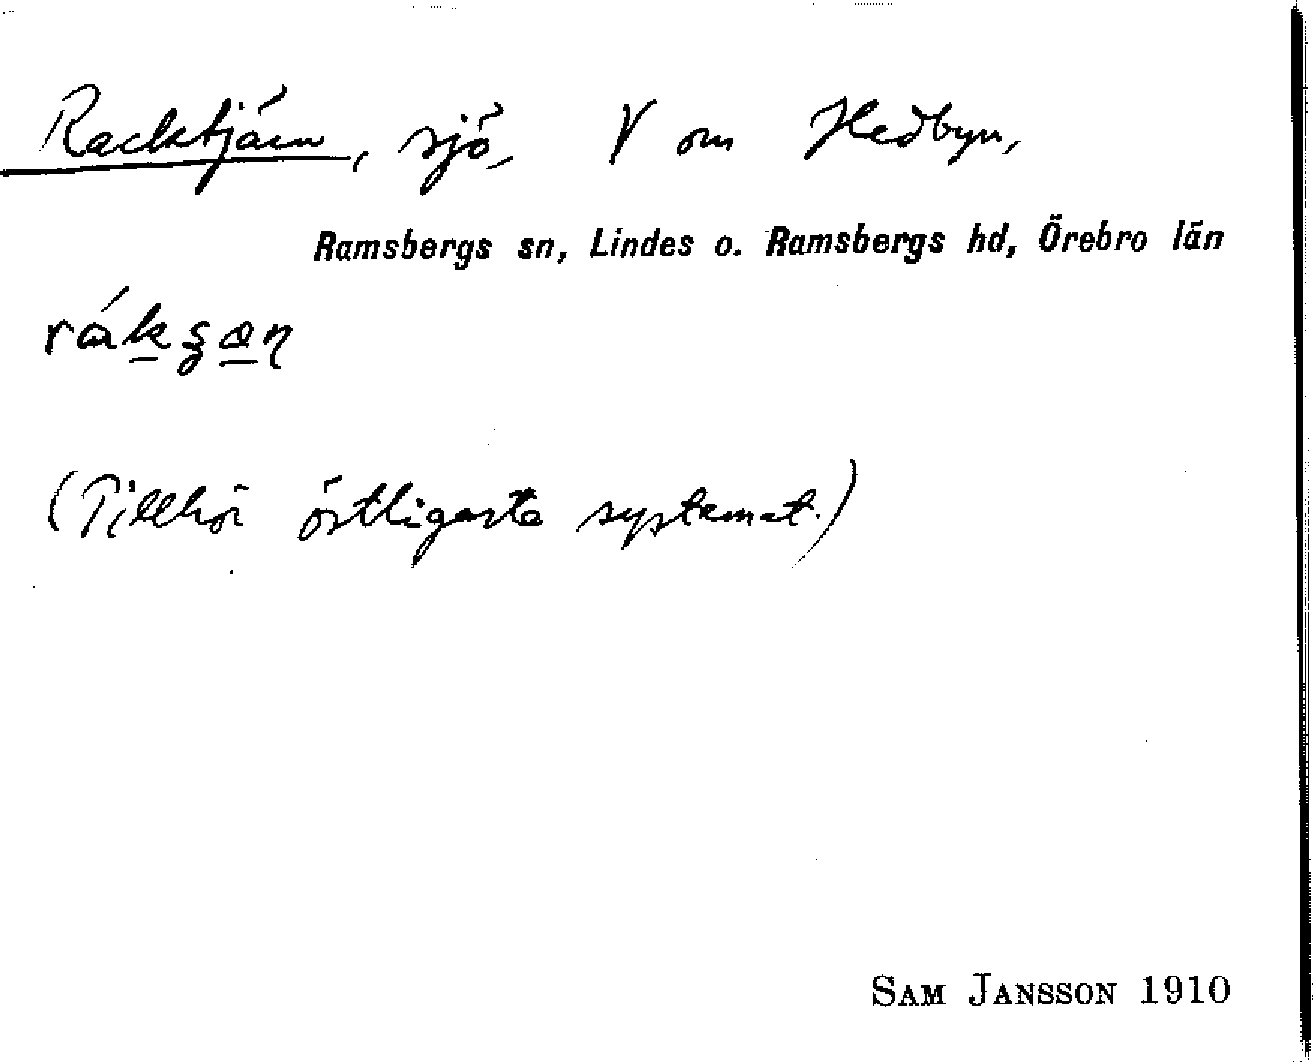 Racktjärn, sjö, V om Hedbyn,
Ramsbergs sn, Lindes o. Ramsbergs hd, Örebro län
(Tillhör östligaste systemet.)
SAM JANSSON 1910